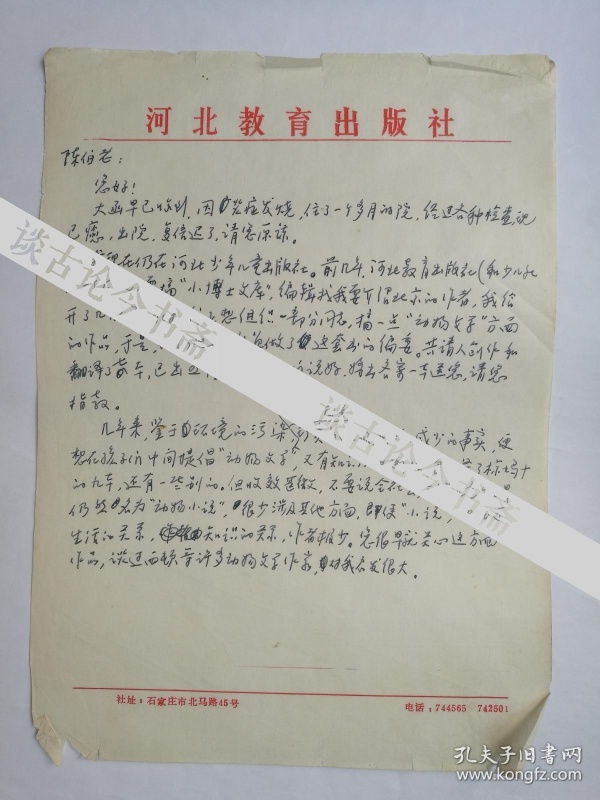 河北教育出版社
陈伯老：
您好！
大函早已收到，因炎症发烧，住了一个多月的院，经过各种检查说
已愈，出院，复信迟了，请您原谅。
现在仍在河北少年儿童出版社。前几年，河北教育出版社（和少儿社
搞“小博士文库”，编辑找我要介绍北京的作者，我给
开了几 想组织一部分同志，搞一点“动物文学”方面
的作品，于是 做了这套书的编委。共请人创作和
翻译了 本，已出 说好，将出齐寄一本送您，请您
指教。
几年来，鉴于环境的污染 减少的事实，便
想在孩子们中间提倡“动物文学”，又有知识
的九本，还有一些别的。但收效甚微，不要说会在
仍然名为“动物小说”，很少涉及其他方面，即使“小说”，
生活的关系，知识的关系，作者极少。您很早就关心这方面
作品，谈过西顿等许多动物文学作家，对我启发很大。
社址：石家庄市北马路45号
电话：744565 742501
谈古论今书斋
谈古论今书斋
谈古论今书斋
孔夫子旧书网
www.kongfz.com